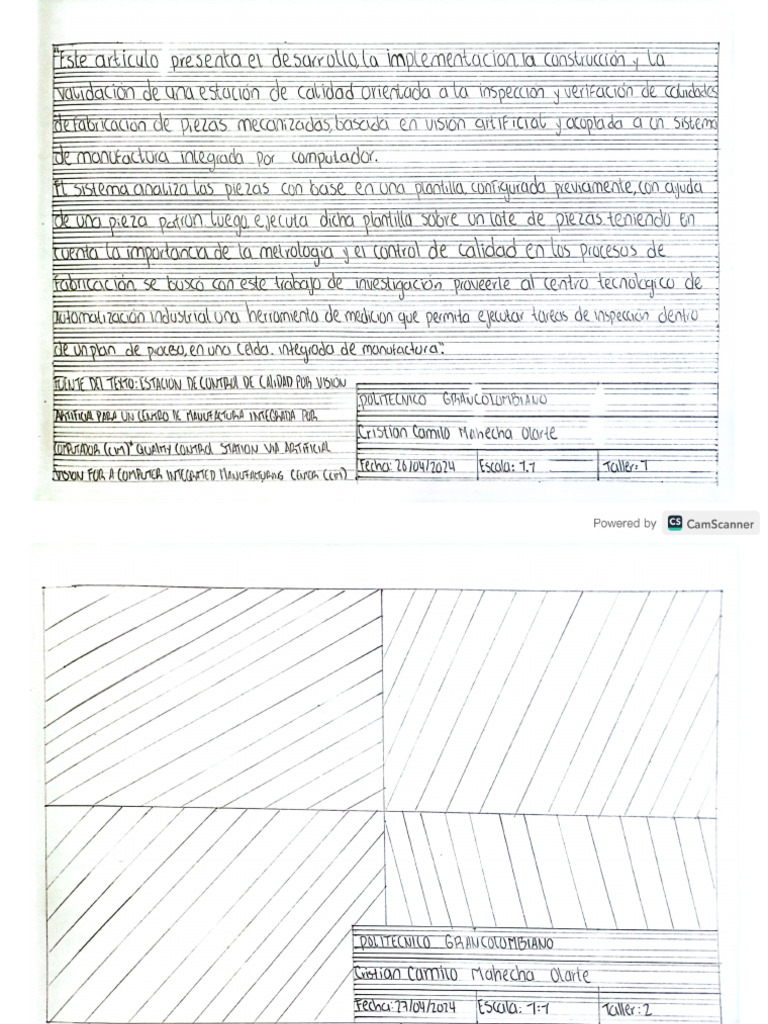 "Este articulo presenta el desarrollo, la implementacion, la construcción y la
validación de una estación de calidad orientada a la inspección y verifación de calidades
de fabricación de piezas mecanizadas, basada en visión artificial y acoplada a un sistema
de manufactura integrada por computador.
El sistema analiza las piezas con base en una plantilla, configurada previamente, con ayuda
de una pieza patron luego, ejecuta dicha plantilla sobre un lote de piezas teniendo en
cuenta la importancia de la metrologia y el control de calidad en los procesos de
fabricación se buscó con este trabajo de investigación proveerle al centro tecnologico de
automatización industrial una herramienta de medicion que permita ejecutar tareas de inspección dentro
de un plan de proceso, en una celda. integrada de manufactura".
FUENTE DEL TEXTO: ESTACIÓN DE CONTROL DE CALIDAD POR VISIÓN
ARTIFICIAL PARA UN CENTRO DE MANUFACTURA INTEGRADA POR
COMPUTADOR (CIM)" QUALITY CONTROL STATION VIA ARTIFICIAL
VISION FOR A COMPUTER INTEGRATED MANUFACTURING CENTER (CIM)
POLITECNICO GRANCOLOMBIANO
Cristian Camilo Mahecha Olarte
Fecha: 26/04/2024 Escala: 1:1 Taller: 1
Powered by CS CamScanner
POLITECNICO GRANCOLOMBIANO
Cristian Camilo Mahecha Olarte
Fecha: 27/04/2024 Escala: 1:1 Taller: 2